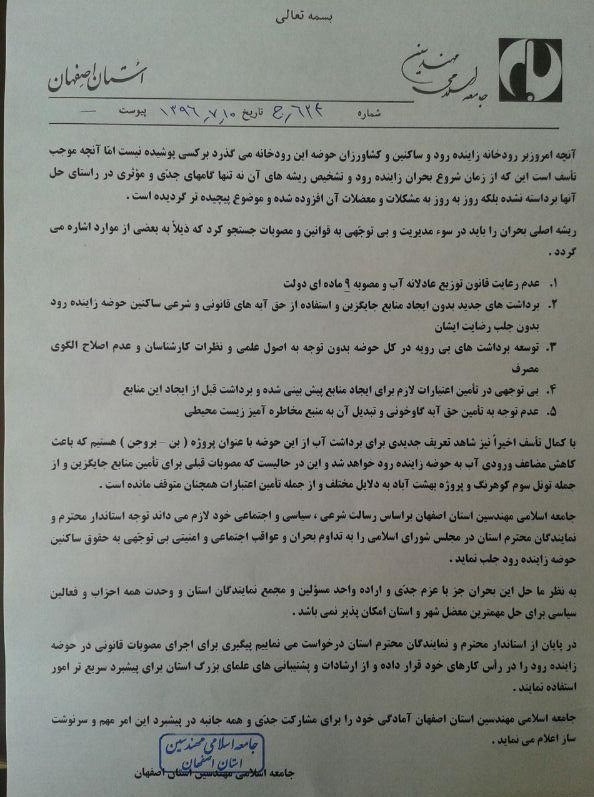 بسمه تعالی
جامعه اسلامی مهندسین
استان اصفهان
شماره ۶۲۴رج تاریخ ۱۳۹۶٫۷٫۱۰ پیوست —
آنچه امروزبر رودخانه زاینده رود و ساکنین و کشاورزان حوضه این رودخانه می گذرد برکسی پوشیده نیست امّا آنچه موجب
تأسف است این که از زمان شروع بحران زاینده رود و تشخیص ریشه های آن نه تنها گامهای جدّی و مؤثری در راستای حل
آنها برداشته نشده بلکه روز به روز به مشکلات و معضلات آن افزوده شده و موضوع پیچیده تر گردیده است .
ریشه اصلی بحران را باید در سوء مدیریت و بی توجّهی به قوانین و مصوبات جستجو کرد که ذیلاً به بعضی از موارد اشاره می
گردد .
۱. عدم رعایت قانون توزیع عادلانه آب و مصوبه ۹ ماده ای دولت
۲. برداشت های جدید بدون ایجاد منابع جایگزین و استفاده از حق آبه های قانونی و شرعی ساکنین حوضه زاینده رود
بدون جلب رضایت ایشان
۳. توسعه برداشت های بی رویه در کل حوضه بدون توجه به اصول علمی و نظرات کارشناسان و عدم اصلاح الگوی
مصرف
۴. بی توجهی در تأمین اعتبارات لازم برای ایجاد منابع پیش بینی شده و برداشت قبل از ایجاد این منابع
۵. عدم توجه به تأمین حق آبه گاوخونی و تبدیل آن به منبع مخاطره آمیز زیست محیطی
با کمال تأسف اخیراً نیز شاهد تعریف جدیدی برای برداشت آب از این حوضه با عنوان پروژه ( بن – بروجن ) هستیم که باعث
کاهش مضاعف ورودی آب به حوضه زاینده رود خواهد شد و این در حالیست که مصوبات قبلی برای تأمین منابع جایگزین و از
جمله تونل سوم کوهرنگ و پروژه بهشت آباد به دلایل مختلف و از جمله تأمین اعتبارات همچنان متوقف مانده است .
جامعه اسلامی مهندسین استان اصفهان براساس رسالت شرعی ، سیاسی و اجتماعی خود لازم می داند توجه استاندار محترم و
نمایندگان محترم استان در مجلس شورای اسلامی را به تداوم بحران و عواقب اجتماعی و امنیتی بی توجّهی به حقوق ساکنین
حوضه زاینده رود جلب نماید .
به نظر ما حل این بحران جز با عزم جدّی و اراده واحد مسؤلین و مجمع نمایندگان استان و وحدت همه احزاب و فعالین
سیاسی برای حل مهمترین معضل شهر و استان امکان پذیر نمی باشد .
در پایان از استاندار محترم و نمایندگان محترم استان درخواست می نماییم پیگیری برای اجرای مصوبات قانونی در حوضه
زاینده رود را در رأس کارهای خود قرار داده و از ارشادات و پشتیبانی های علمای بزرگ استان برای پیشبرد سریع تر امور
استفاده نمایند .
جامعه اسلامی مهندسین استان اصفهان آمادگی خود را برای مشارکت جدّی و همه جانبه در پیشبرد این امر مهم و سرنوشت
ساز اعلام می نماید .
جامعه اسلامی مهندسین
استان اصفهان
جامعه اسلامی مهندسین استان اصفهان